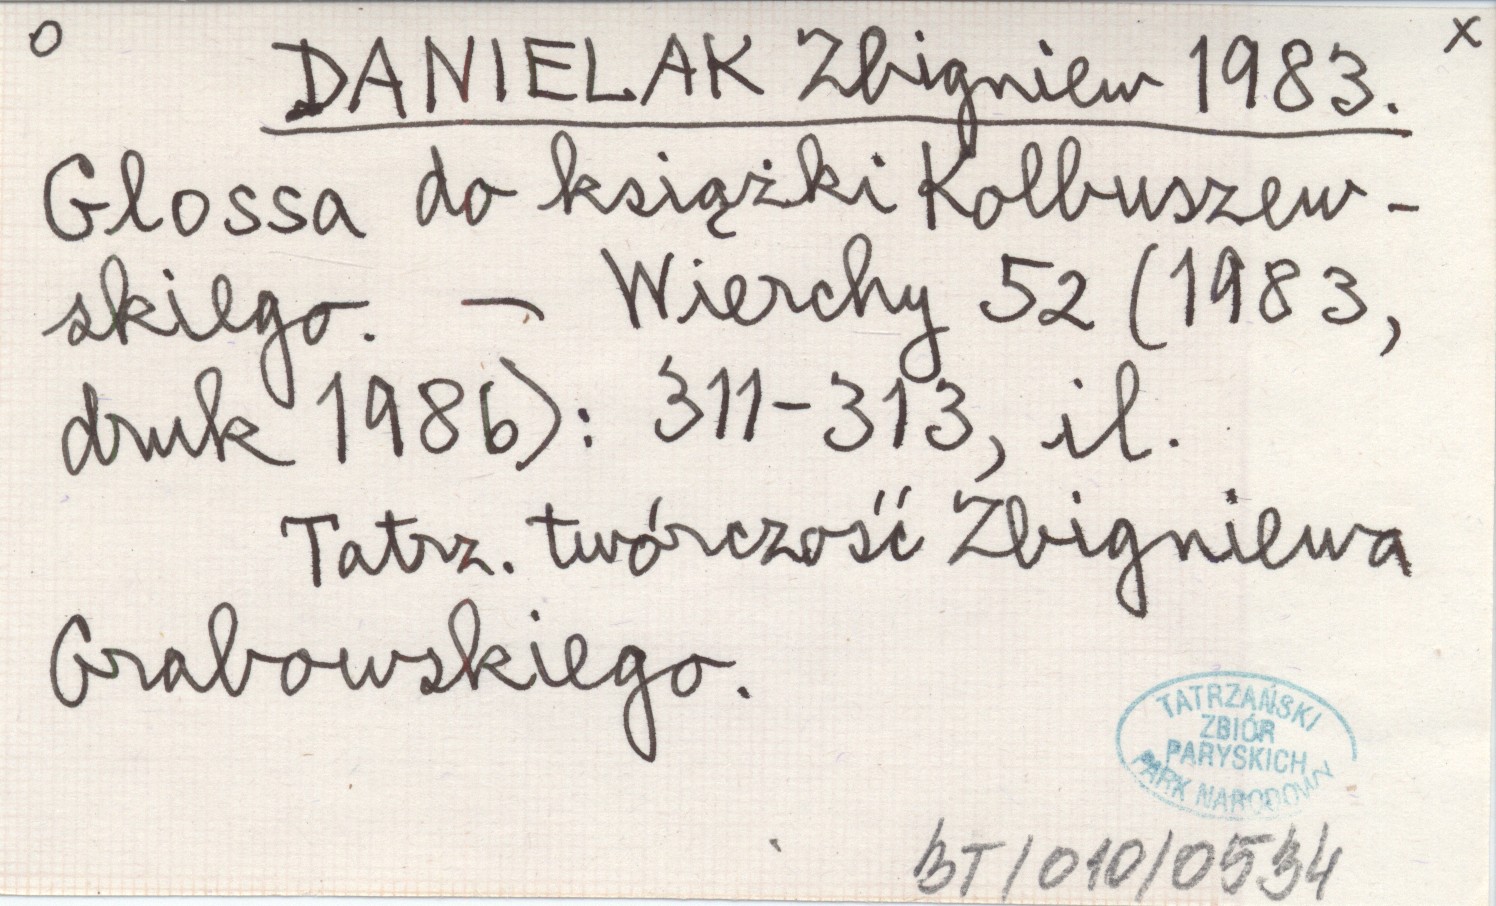 o DANIELAK Zbigniew 1983. x
Glossa do książki Kolbuszew-
skiego. – Wierchy 52 (1983,
druk 1986): 311-313, il.
Tatrz. twórczość Zbigniewa
Grabowskiego.
TATRZAŃSKI
ZBIÓR
PARYSKICH
PARK NARODOWY
BT/010/0534